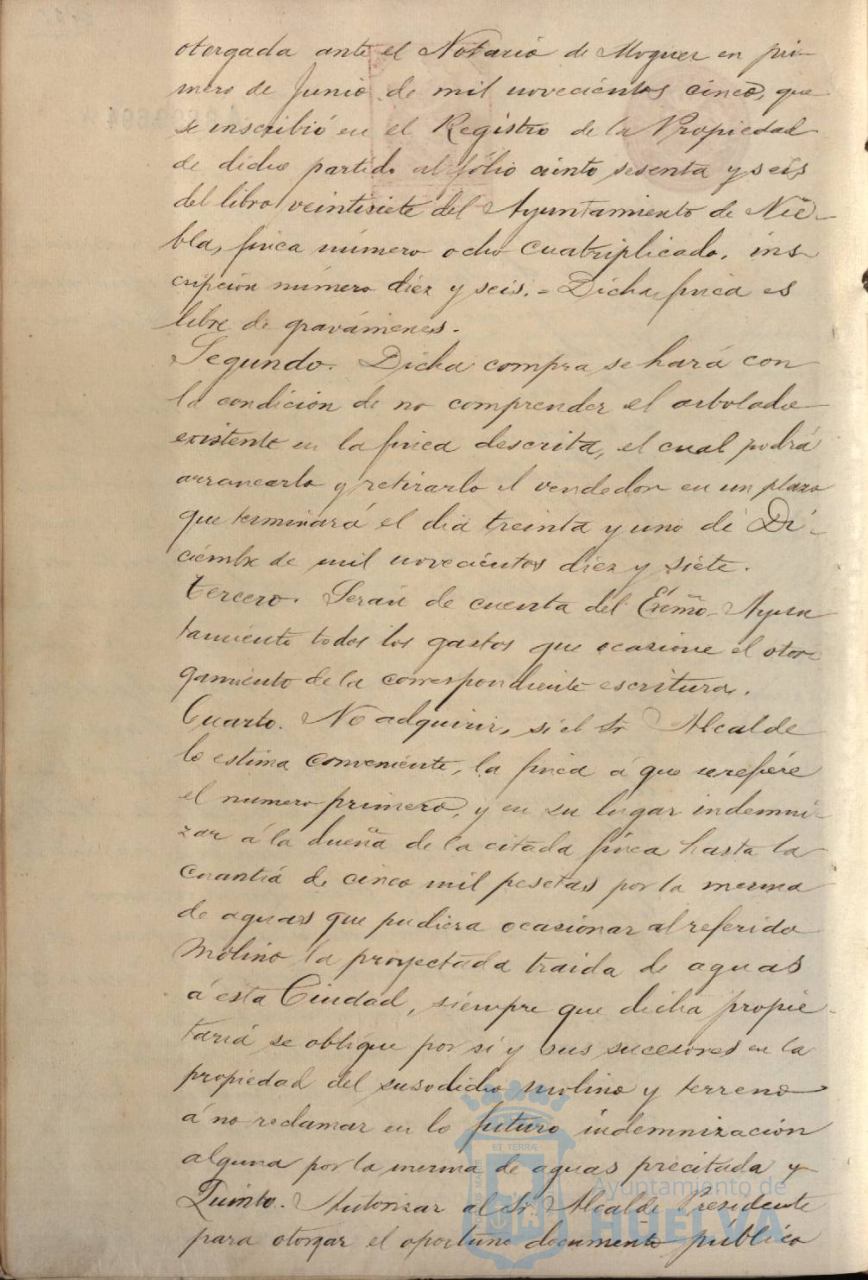 otorgada ante el Notario de Moguer en pri-
mero de Junio de mil novecientos cinco, que
se inscribió en el Registro de la Propiedad
de dicho partido al fólio ciento sesenta y seis
del libro veintisiete del Ayuntamiento de Nie-
bla, finca número ocho cuatriplicado, ins-
cripción número diez y seis. = Dicha finca es
libre de gravámenes.
Segundo. Dicha compra se hará con
la condición de no comprender el arbolado
existente en la finca descrita, el cual podrá
arrancarlo y retirarlo el vendedor en un plazo
que terminará el dia treinta y uno de Di-
ciembre de mil novecientos diez y siete.
Tercero. Serán de cuenta del Excmo. Ayun
tamiento todos los gastos que ocasione el otor
gamiento de la correspondiente escritura.
Cuarto. No adquirir, si el Sr Alcalde
lo estima conveniente, la finca á que se refiere
el numero primero, y en su lugar indemni-
zar á la dueña de la citada finca hasta la
cuantía de cinco mil pesetas por la merma
de aguas que pudiera ocasionar al referido
molino la proyectada traida de aguas
á esta Ciudad, siempre que dicha propie-
taria se oblique por sí y sus sucesores en la
propiedad del susodicho molino y terreno
á no reclamar en lo futuro indemnización
alguna por la merma de aguas precitada y
Quinto. Autorizar al Sr. Alcalde Presidente
para otorgar el oportuno documento publico
ET TERRÆ
Ayuntamiento de
HUELVA